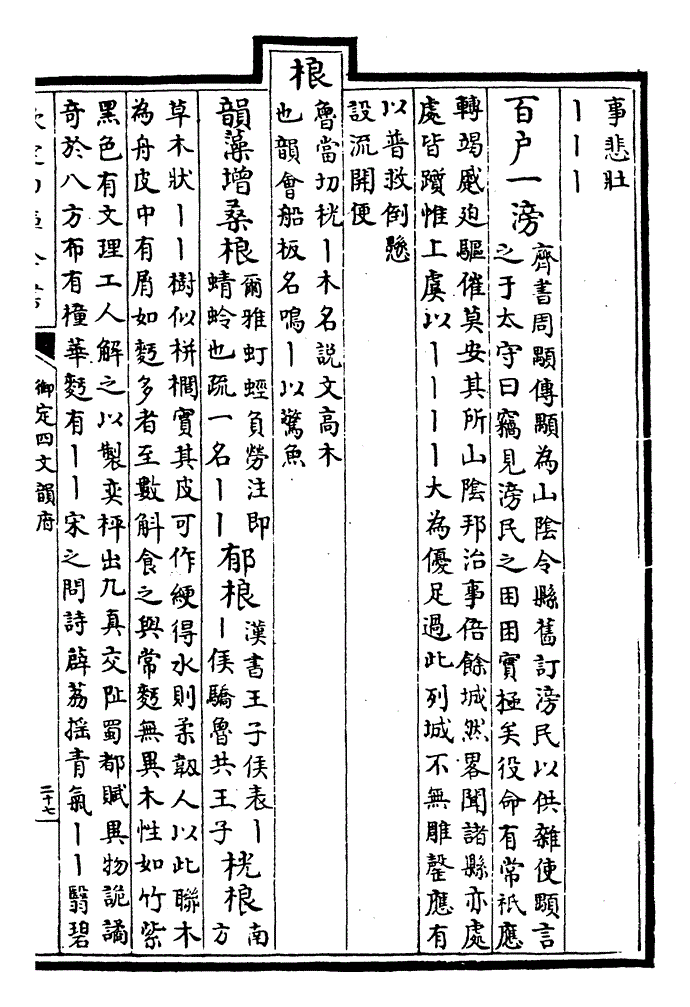 事悲壯
丨丨丨
百户一滂
齊書周顒傳顒為山陰令縣舊訂滂民以供雜使顒言
之于太守曰竊見滂民之困困實極矣役命有常祇應
轉竭蹙迫驅催莫安其所山陰邦治事倍餘城然畧聞諸縣亦處
處皆躓惟上虞以丨丨丨丨大為優足過此列城不無雕罄應有
以普救倒懸
設流開便
桹
魯當切桄丨木名說文高木
也韻會船板名鳴丨以驚魚
韻藻增桑桹
爾雅虰蛵負勞注即
蜻蛉也疏一名丨丨
郁桹
漢書王子侯表丨
丨侯驕魯共王子
桄桹
南
方
草木狀丨丨樹似栟櫚實其皮可作綆得水則柔韌人以此聯木
為舟皮中有屑如麪多者至數斛食之與常麪無異木性如竹紫
黑色有文理工人解之以製奕枰出九真交阯蜀都賦異物詭譎
奇於八方布有橦華麪有丨丨宋之問詩薜荔摇青氣丨丨翳碧
御定四文韻府
二十七